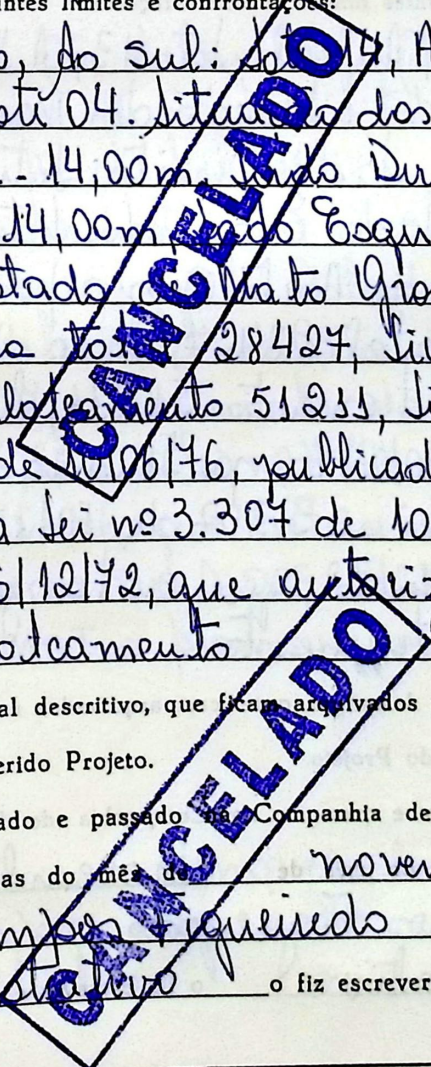 intes limites e confrontações:
o, do sul: Lote 14, A
ote 04. Situação dos
- 14,00m, Lado Dir
14,00m, Lado Esqu
stado de Mato Gro
a total 28427, Liv
loteamento 51211, Li
de 10/06/76, publicad
a Lei nº 3.307 de 10
6/12/72, que autoriz
oteamento
al descritivo, que ficam arquivados
erido Projeto.
ado e passado na Companhia de
as do mês de novem
mpos Figueiredo
o fiz escrever
CANCELADO
CANCELADO